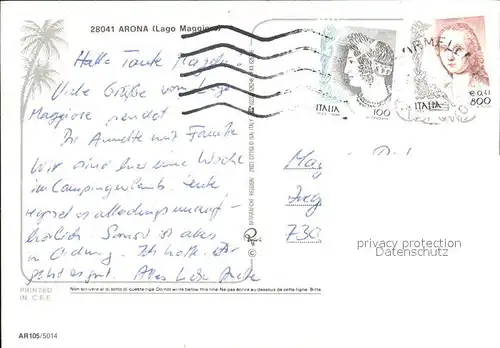 28041 ARONA (Lago Maggiore)
Hallo Tante Magda
Viele Grüße vom Lago
Maggiore sendet
Dir Annette mit Familie
Wir sind hier eine Woche
im Campingurlaub. Heute
regnet es allerdings unauf-
hörlich. Sonst ist alles
in Ordnung. Ich hoffe, Dir
geht es gut. Alles Liebe
ITALIA
100
ITALIA
€ 0,41
800
Mag
730
privacy protection
Datenschutz
PRINTED
IN C.E.E.
Non scrivere al di sotto di questa riga. Do not write below this line. Ne pas écrire au-dessous de cette ligne. Bitte
AR105/5014